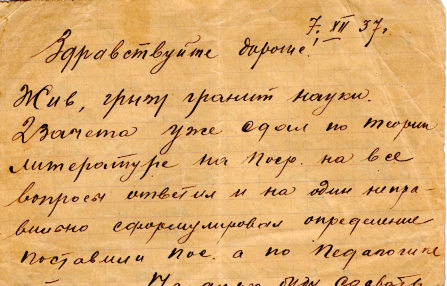 7. XII 37г.
Здравствуйте дорогие!
Жив, грызу гранит науки.
2 зачета уже сдал по теории
литературе на пос. на все
вопросы ответил и на один непра-
вильно сформулировал определение
поставили пос. а по педагогике
буду сдавать